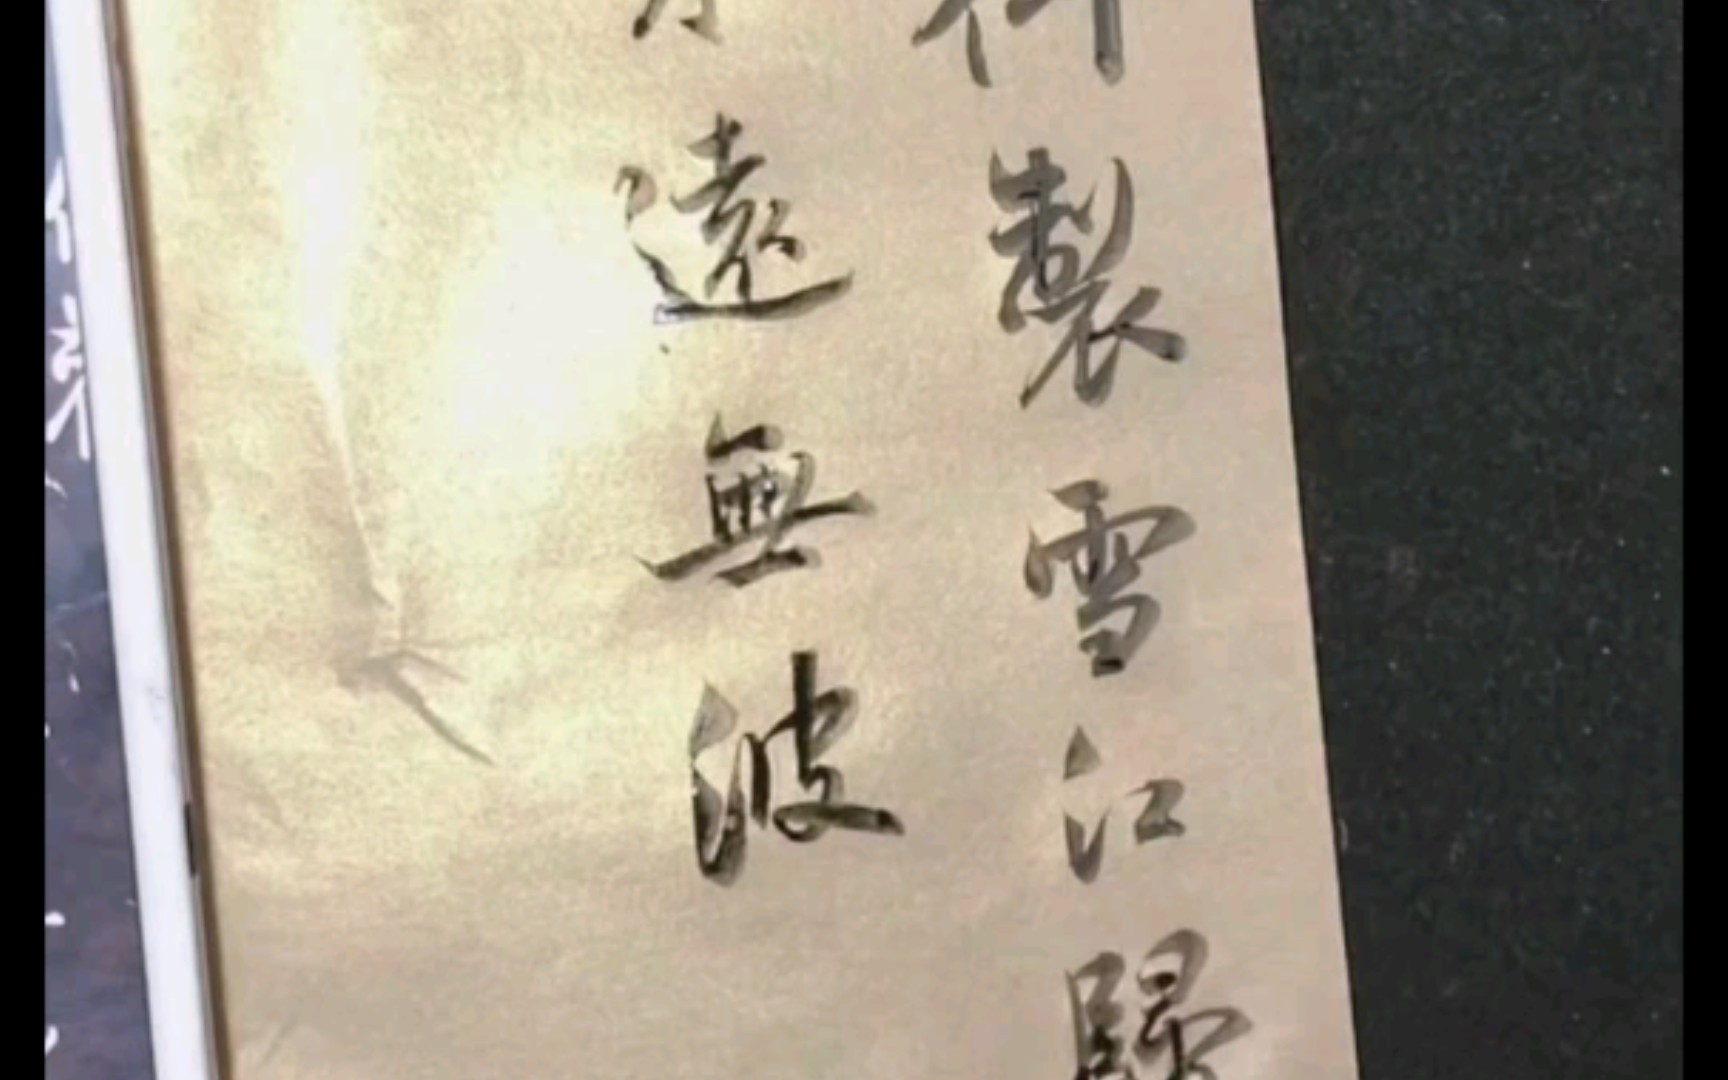 製雪江歸
遠無波